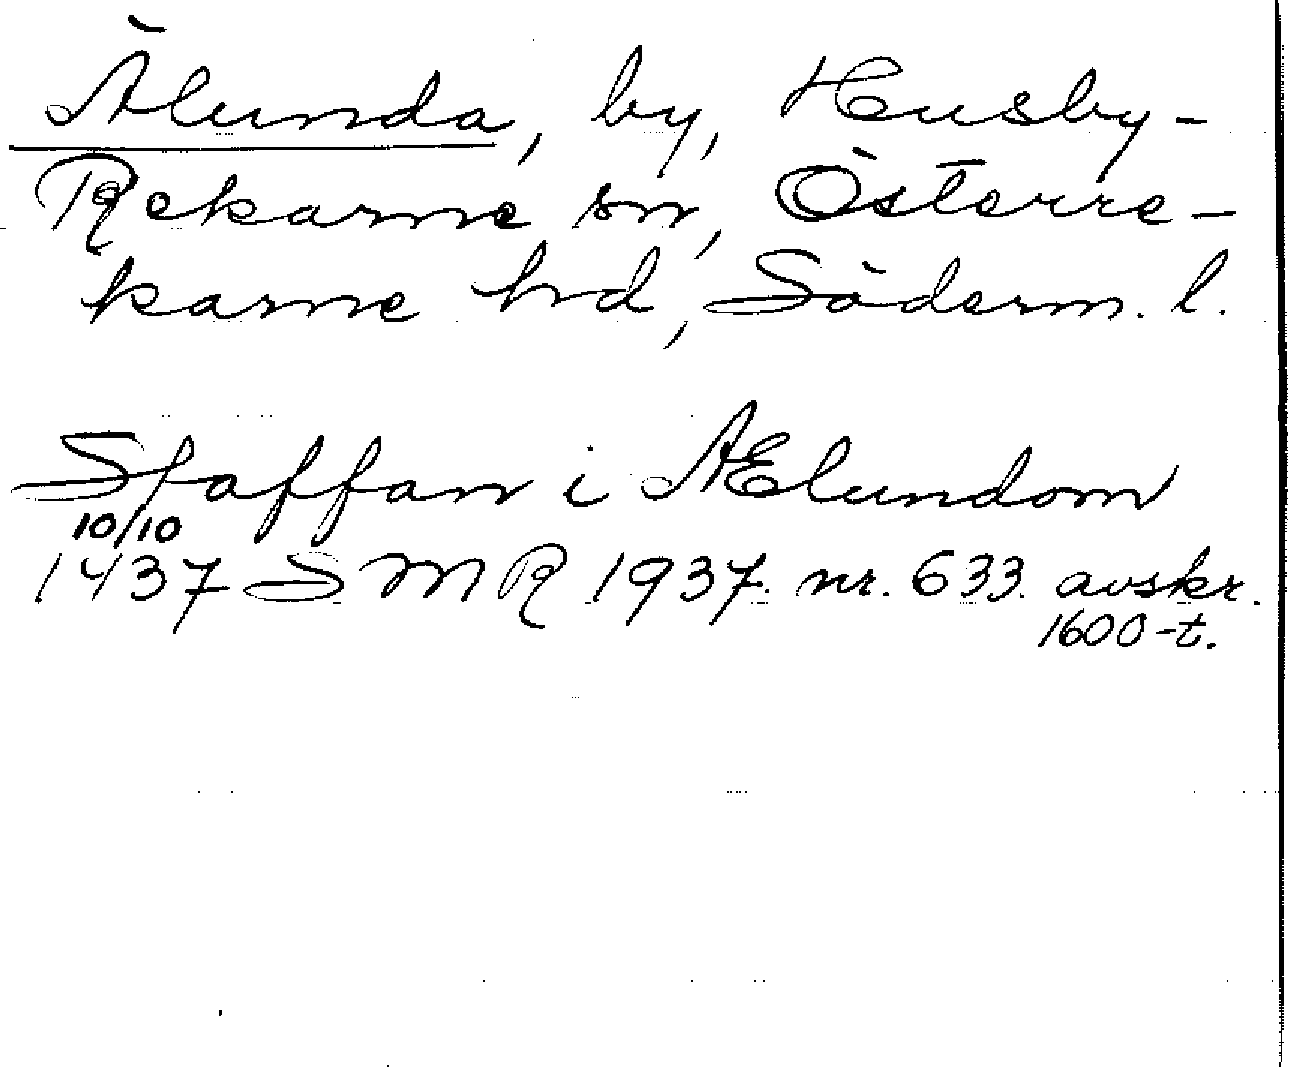 Älunda, by, Husby-
Rekarne sn, Österre-
karne hd, Söderm. l.
Staffan i Ælundom
10/10
1437 SMR 1937 nr. 633 avskr.
1600-t.